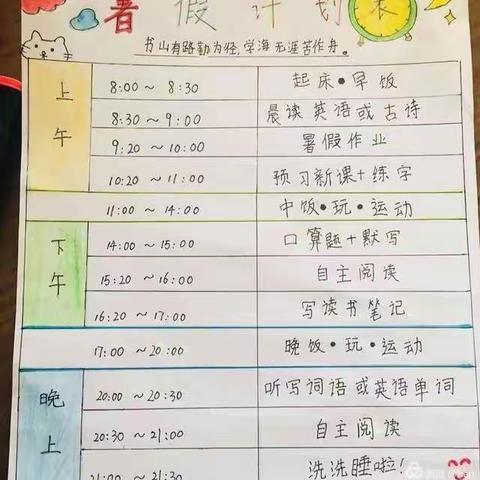 暑假计划表
书山有路勤为径,学海无涯苦作舟。
上午
8:00 ~ 8:30 起床•早饭
8:30 ~ 9:00 晨读英语或古诗
9:20 ~ 10:00 暑假作业
10:20 ~ 11:00 预习新课+练字
11:00 ~ 14:00 中饭•玩•运动
下午
14:00 ~ 15:00 口算题+默写
15:20 ~ 16:00 自主阅读
16:20 ~ 17:00 写读书笔记
17:00 ~ 20:00 晚饭•玩•运动
晚上
20:00 ~ 20:30 听写词语或英语单词
20:30 ~ 21:00 自主阅读
21:00 ~ 21:30 洗洗睡啦!